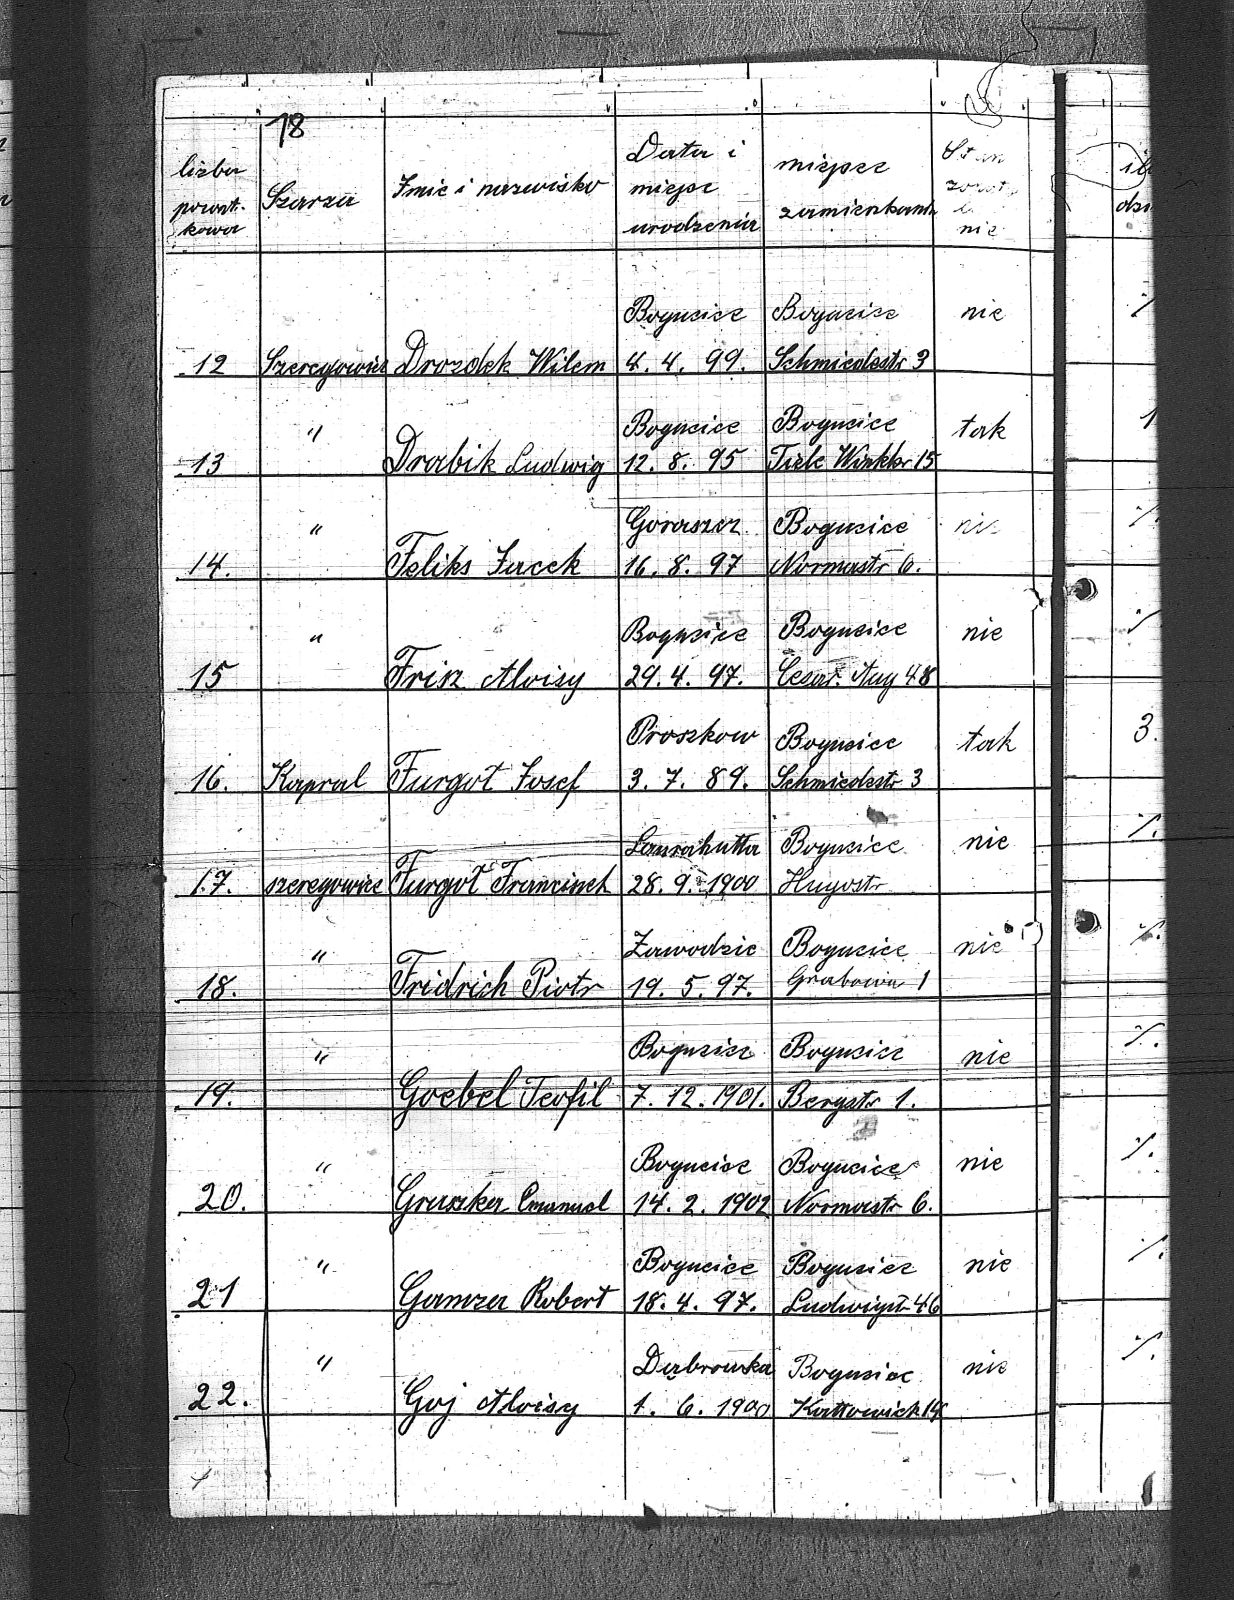 18
liczba porząt. kowa
Szarza
Imie i nazwisko
Data i miejsc urodzenia
miejsce zamieszkania
Stan żonat. nie
Bogucice Bogucice nie
12 Szeregowiec Drozdek Wilem 4. 4. 99. Schmiedestr 3
" Bogucice Bogucice tak 1
13 Drabik Ludwig 12. 8. 95 Tiele Winkler 15
" Bogucice
14. Feliks Jacek 16. 8. 97 Normastr 6.
" Bogucice Bogucice nie
15 Frisz Aloisy 29. 4. 97. Cesarz. Aug 48
Proszkow Bogucice tak 3.
16. Kapral Furgot Josef 3. 7. 89. Schmiedestr 3
Laurahutta Bogucice nie
17. szeregowiec Furgot Francisch 28. 9. 1900 Hugostr
" Zawodzie Bogucice nie
18. Fridrich Piotr 19. 5. 97. Grabowa 1
" Bogucice Bogucice nie
19. Goebel Teofil 7. 12. 1901. Bergstr 1.
" Bogucice Bogucice nie
20. Gruszka Emanuel 14. 2. 1902 Normastr 6.
" Bogucice Bogucice nie
21 Gamza Robert 18. 4. 97. Ludwigst 46
" Dabrowka Bogucice nie
22. Goj Aloisy 1. 6. 1900 Kattowick 14